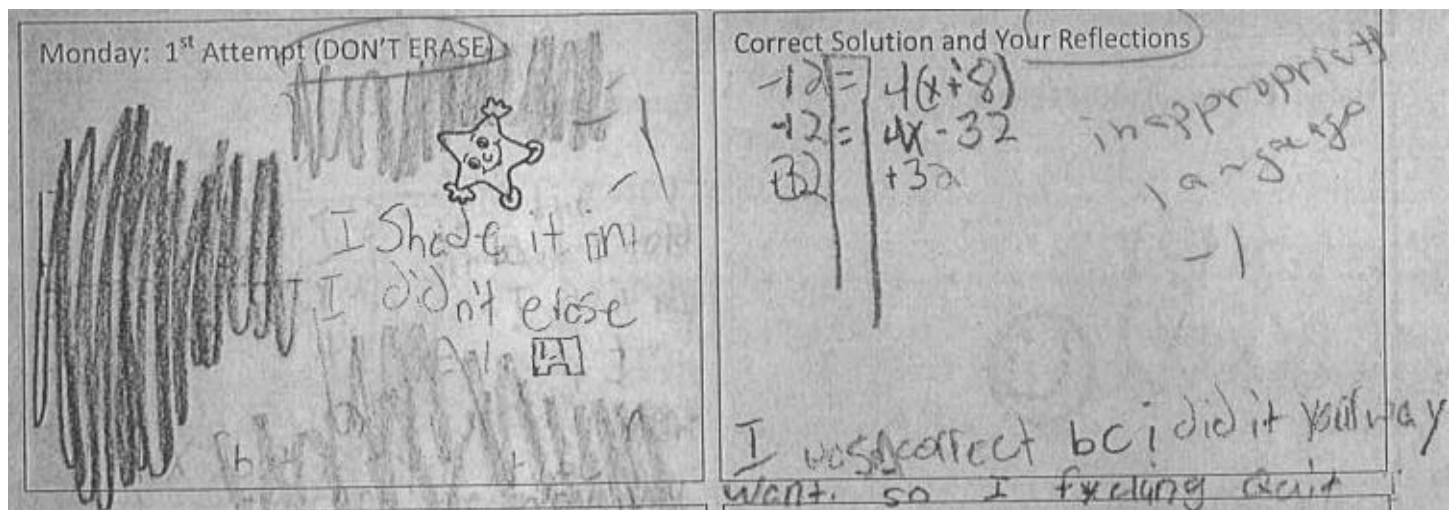 Monday: 1st Attempt (DON'T ERASE)
-1
I Shade it int
I didn't erase
Correct Solution and Your Reflections
-12 = 4(x+8)
-12 = 4x - 32
+32 +32
inappropriate
language
-1
I was correct bc i did it your way
want. so I Quit